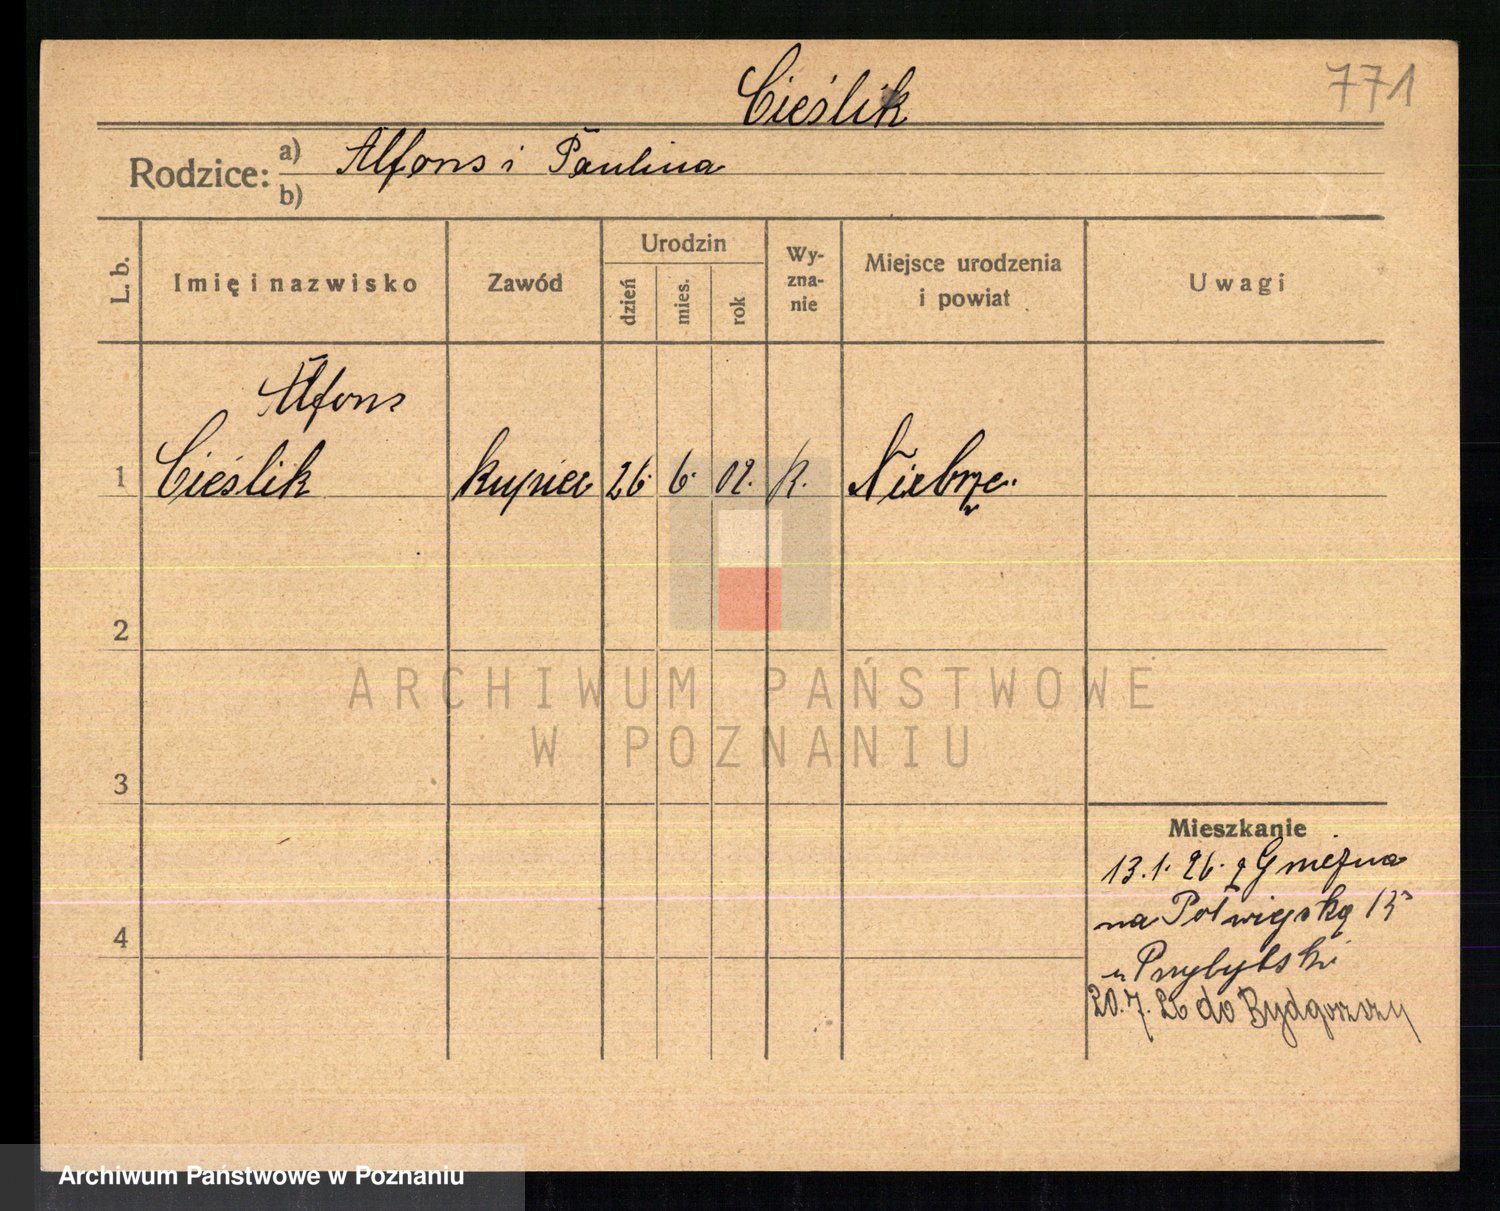 Cieślik
771
Rodzice: a) Alfons i Paulina
b)
L. b.
Imię i nazwisko
Zawód
Urodzin
dzień
mies.
rok
Wy-
zna-
nie
Miejsce urodzenia
i powiat
Uwagi
Alfons
1 Cieślik kupiec 26. 6. 02. k.
2
3
4
Mieszkanie
13.1.26. z Gniezna
na Półwiejską 15
u Przybylski
20.7.26 do Bydgoszczy
ARCHIWUM PAŃSTWOWE
W POZNANIU
Archiwum Państwowe w Poznaniu